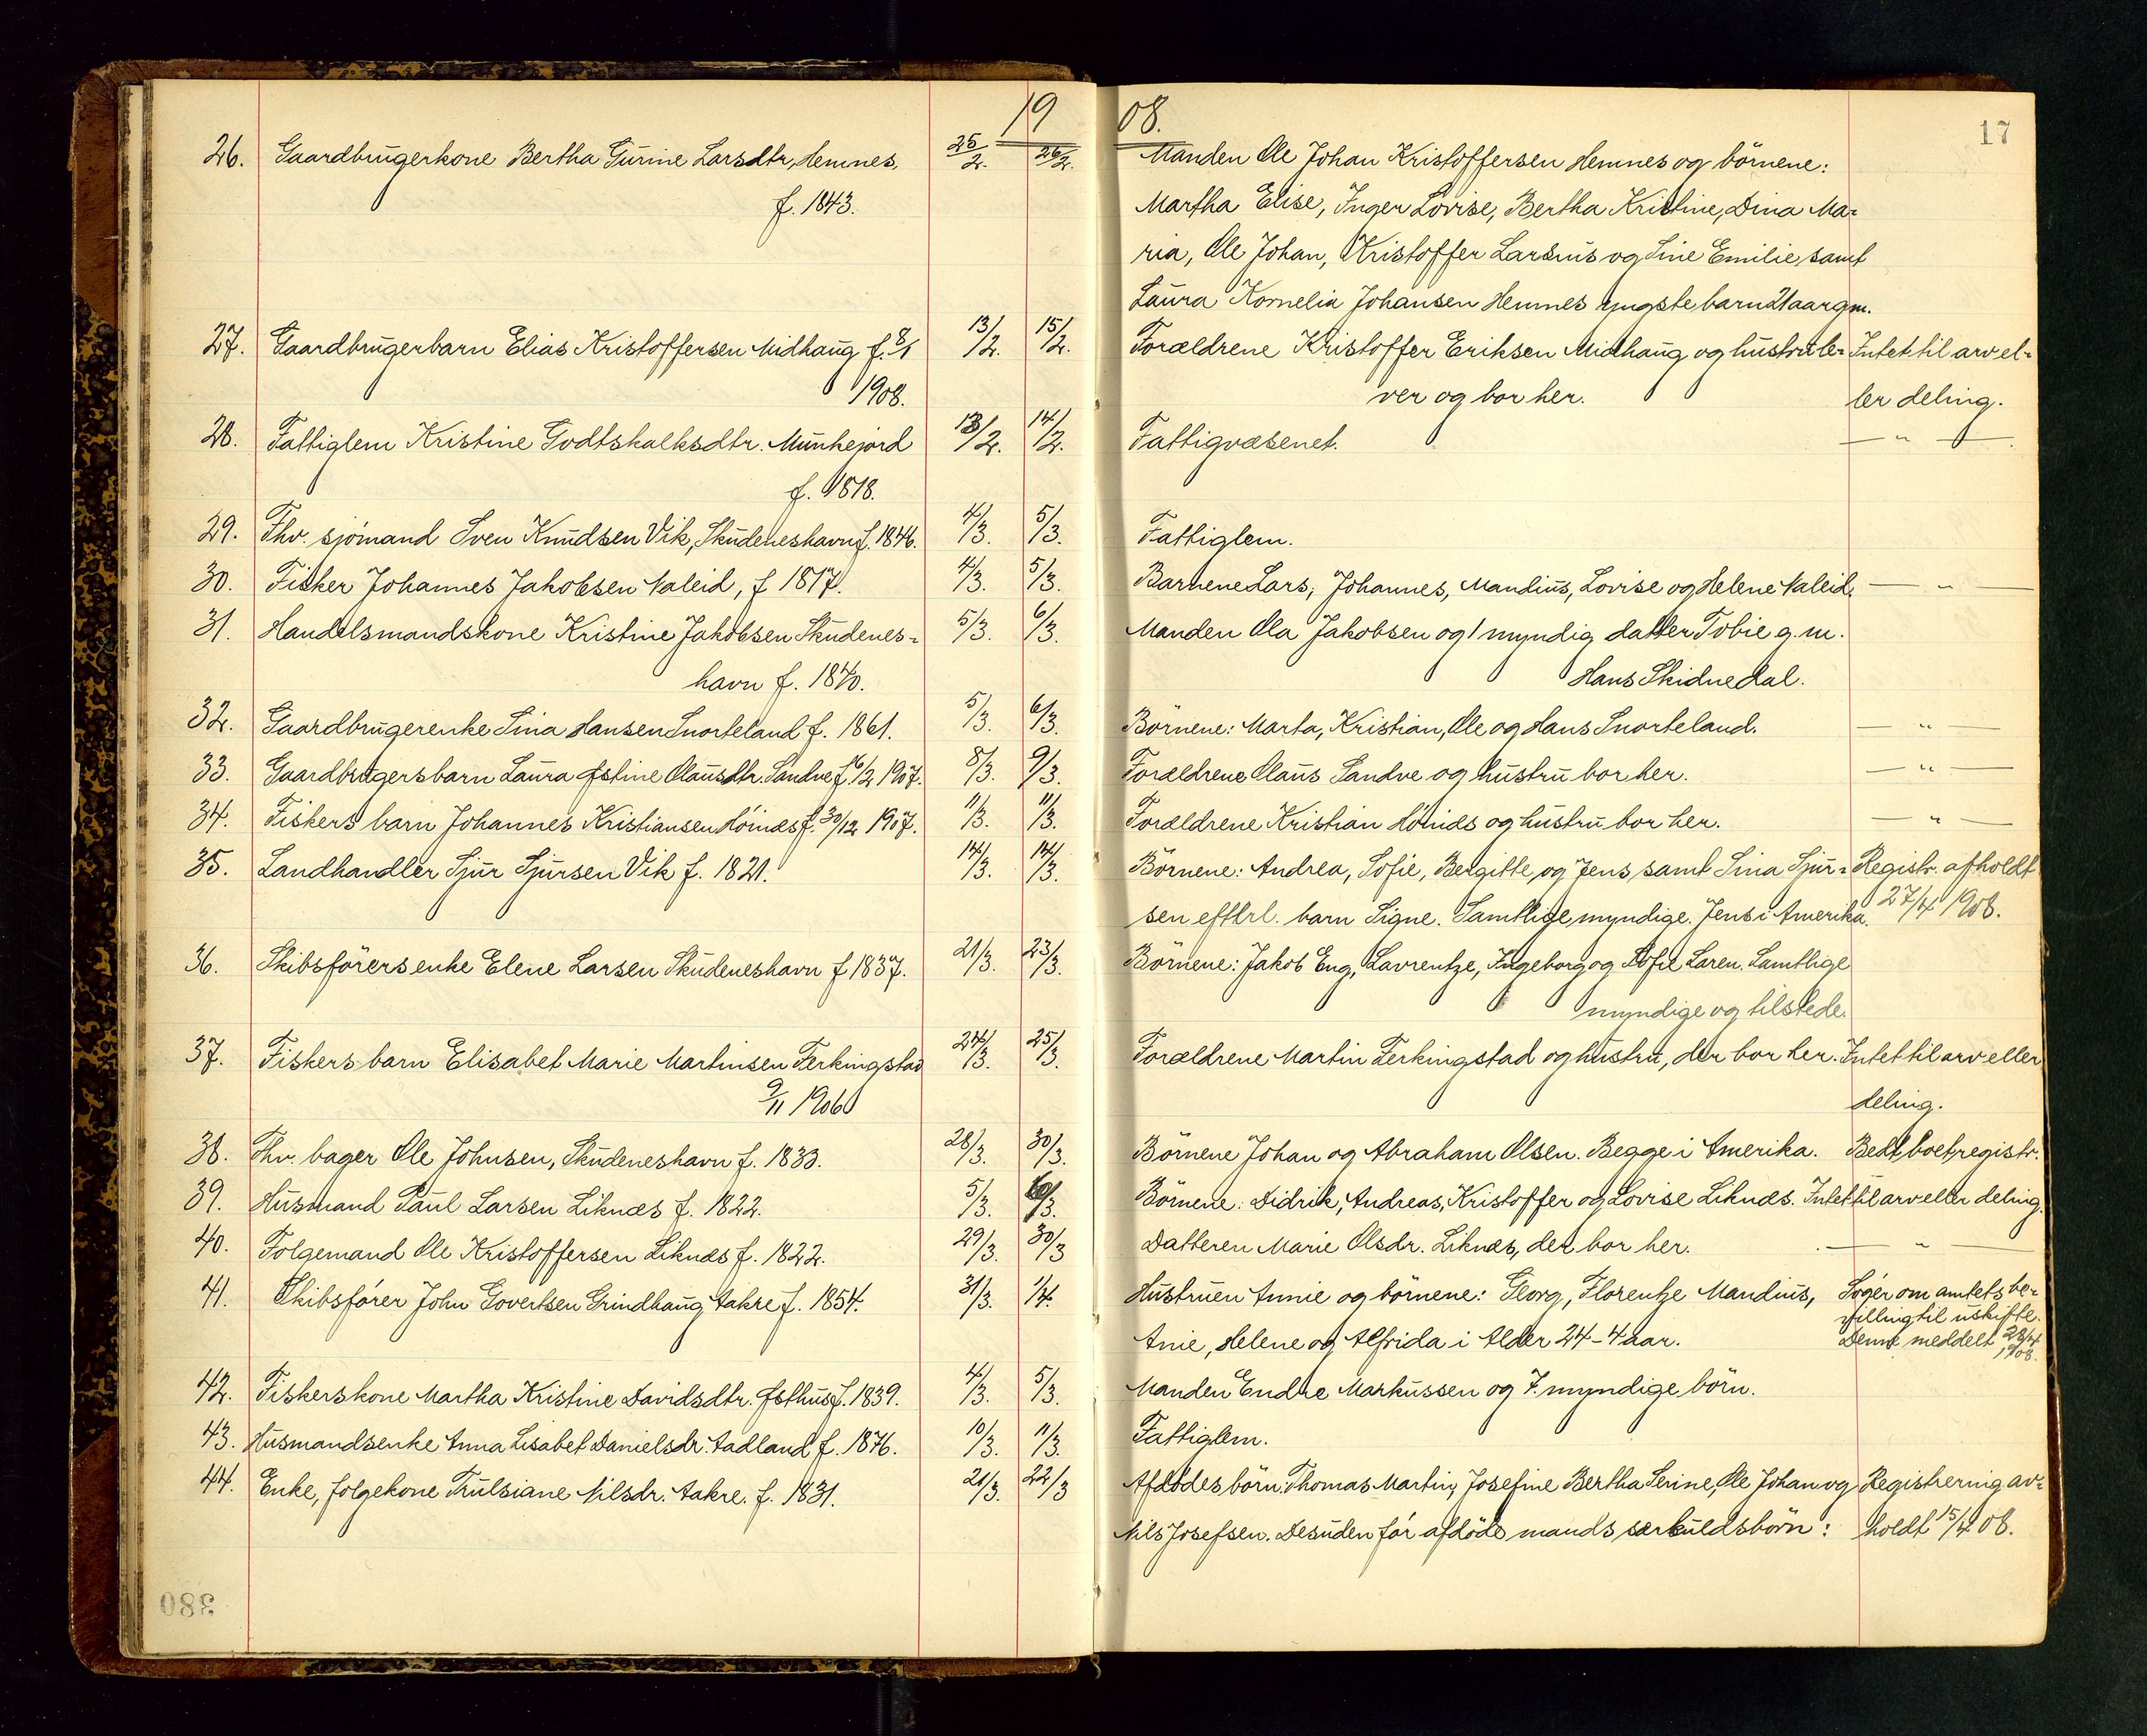 1908.
17
26. Gaardbrugerkone Bertha Gurine Larsdtr, Hemnes, 25/2. 26/2. Manden Ole Johan Kristoffersen Hemnes og börnene:
f. 1843. Martha Elise, Inger Lovise, Bertha Kristine, Dina Ma-
ria, Ole Johan, Kristoffer Larsius og Sine Emilie samt
Laura Kornelia Johansen Hemnes yngste barn 21 aar gm.
27. Gaardbrugerbarn Elias Kristoffersen Midhaug f. 8/1 13/2. 15/2. Forældrene Kristoffer Eriksen Midhaug og hustru le- Intet til arv el-
1908. ver og bor her. ler deling.
28. Fattiglem Kristine Godtskalksdtr. Munkejord 13/2. 14/2. Fattigvæsenet. — " —
f. 1818.
29. Fhv. sjömand Sven Knudsen Vik, Skudeneshavn f. 1846. 4/3. 5/3. Fattiglem.
30. Fisker Johannes Jakobsen Valeid, f 1817. 4/3. 5/3. Barnene Lars, Johannes, Mandius, Lovise og Helene Valeid. — " —
31. Handelsmandskone Kristine Jakobsen Skudenes- 5/3. 6/3. Manden Ola Jakobsen og 1 myndig datter Tobie g.m.
havn f. 1840. Hans Skidnedal.
32. Gaardbrugerenke Sina Hansen Snorteland f. 1861. 5/3. 6/3. Börnene: Marta, Kristian, Ole og Hans Snorteland. — " —
33. Gaardbrugersbarn Laura Østine Olausdtr. Sandve f. 6/2 1907. 8/3. 9/3. Forældrene Olaus Sandve og hustru bor her. — " —
34. Fiskers barn Johannes Kristiansen Höinæs f. 30/12 1907. 11/3. 11/3. Forældrene Kristian Höinæs og hustru bor her. — " —
35. Landhandler Sjur Sjursen Vik f. 1821. 14/3. 14/3. Börnene: Andrea, Sofie, Bergitte og Jens samt Sina Sjur- Registr. afholdt
sen efterl. barn Signe. Samtlige myndige. Jens i Amerika. 27/4 1908.
36. Skibsförersenke Elene Larsen Skudeneshavn f 1837. 21/3. 23/3. Börnene: Jakob Eng, Lavrentze, Ingeborg og Sofie Laren. Samtlige
myndige og tilstede.
37. Fiskers barn Elisabet Marie Martinsen Ferkingstad 24/3. 25/3. Forældrene Martin Ferkingstad og hustru, der bor her. Intet til arv eller
9/11 1906 deling.
38. Fhv. bager Ole Johnsen, Skudeneshavn f. 1833. 28/3. 30/3. Börnene Johan og Abraham Olsen. Begge i Amerika. Bedt boet registr.
39. Husmand Paul Larsen Liknæs f. 1822. 5/3. 6/3. Börnene: Didrik, Andreas, Kristoffer og Lovise Liknæs. Intet til arv eller deling.
40. Folgemand Ole Kristoffersen Liknæs f. 1822. 29/3. 30/3 Datteren Marie Olsdr. Liknæs, der bor her. — " —
41. Skibsförer John Govertsen Grindhaug Aakre f. 1854. 31/3. 1/4. Hustruen Annie og börnene: Georg, Florentze Mandius, Söger om amtets be-
villing til uskifte.
Anie, Helene og Alfrida i Alder 24-4 aar. Denne meddelt 28/4
1908.
42. Fiskerskone Martha Kristine Davidsdtr. Østhus f. 1839. 4/3. 5/3. Manden Endre Markussen og 7 myndige börn.
43. Husmandsenke Anna Lisabet Danielsdr. Aadland f. 1876. 10/3. 11/3. Fattiglem.
44. Enke, folgekone Trulsiane Nilsdr. Aakre. f. 1831. 21/3. 22/3 Afdödes börn: Thomas Martin, Josefine Bertha Serine, Ole Johan og Registrering av-
Nils Josefsen. Desuden för afdöde mands særkuldsbörn: holdt 15/4 08.
380